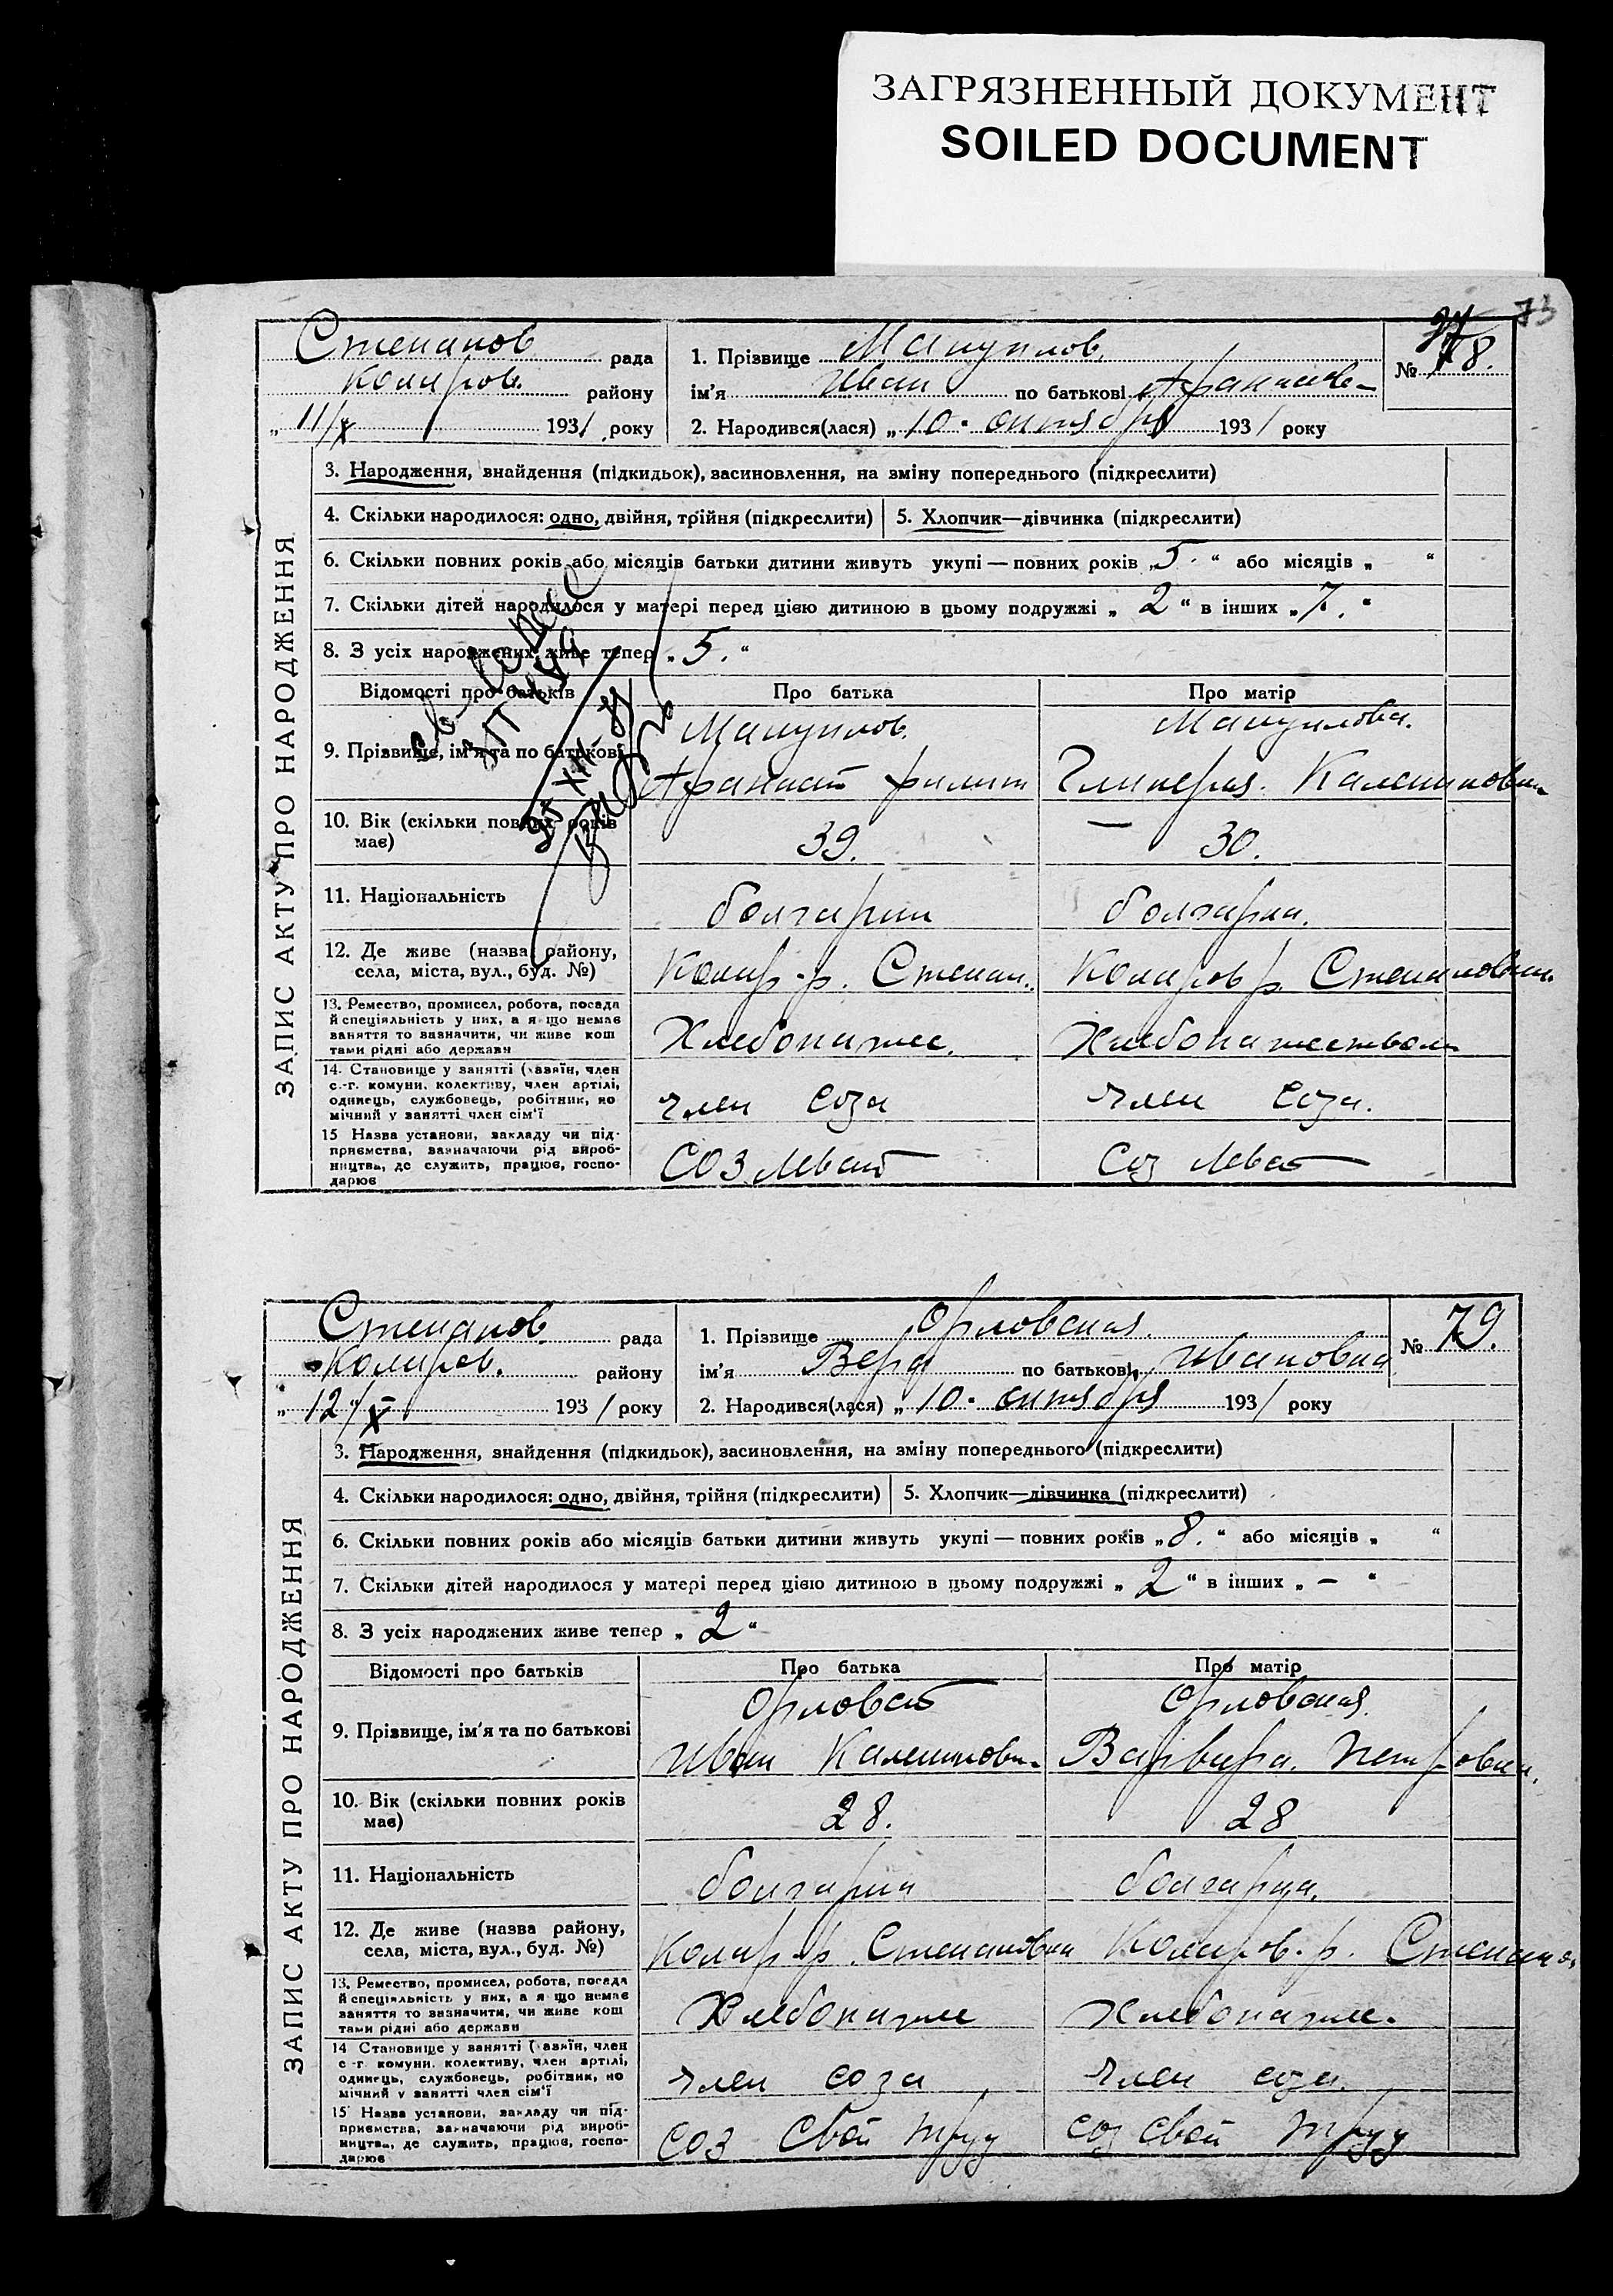 ЗАГРЯЗНЕННЫЙ ДОКУМЕНТ
SOILED DOCUMENT
73
Степанов рада
Коларов. району
„ 11/X 1931 року
1. Прізвище Мануилов.
ім'я Иван по батькові Афанасьев
2. Народився(лася) „ 10. октября 1931 року
№ 78.
ЗАПИС АКТУ ПРО НАРОДЖЕННЯ
3. Народження, внайдення (підкидьок), засиновлення, на зміну попереднього (підкреслити)
4. Скільки народилося: одно, двійня, трійня (підкреслити) 5. Хлопчик—дівчинка (підкреслити)
6. Скільки повних років або місяців батьки дитини живуть укупі — повних років „ 5. “ або місяців „ “
7. Скільки дітей народилося у матері перед цією дитиною в цьому подружжі „ 2 “ в інших „ 7. “
8. З усіх народжених живе тепер „ 5. “
Відомості про батьків Про батька Про матір
9. Прізвище, ім'я та по батькові
Мануилов. Мануилова.
Афанасий Филип Гликерия. Калениковна
10. Вік (скільки повних років
має)
39. 30.
11. Національність
болгарин болгарка.
12. Де живе (назва району,
села, міста, вул., буд. №)
Колар. р. Степан. Коларов р. Степановка
13. Ремество, промисел, робота, посада
й спеціяльність у них, а якщо немає
заняття то вазначити, чи живе кош
тами рідні або держави
Хлебопашес. Хлебопашеством
14. Становище у занятті (хазяїн, член
с.-г. комуни, колективу, член артілі,
одинець, службовець, робітник, по
мічний у занятті член сім'ї
член соза член соза.
15 Назва установи, закладу чи під-
приємства, вазначаючи рід вироб-
ництва, де служить, працює, госпо-
дарює
СОЗ Левай Соз Левай
Степанов рада
Коларов. району
„ 12/X 1931 року
1. Прізвище Орловская.
ім'я Вера по батькові Ивановна
2. Народився(лася) „ 10. октября 1931 року
№ 79.
ЗАПИС АКТУ ПРО НАРОДЖЕННЯ
3. Народження, знайдення (підкидьок), засиновлення, на зміну попереднього (підкреслити)
4. Скільки народилося: одно, двійня, трійня (підкреслити) 5. Хлопчик—дівчинка (підкреслити)
6. Скільки повних років або місяців батьки дитини живуть укупі — повних років „ 8. “ або місяців „ “
7. Скільки дітей народилося у матері перед цією дитиною в цьому подружжі „ 2 “ в інших „ — “
8. З усіх народжених живе тепер „ 2 “
Відомості про батьків Про батька Про матір
9. Прізвище, ім'я та по батькові
Орловский Орловская.
Иван Калеников. Варвара. Петровна.
10. Вік (скільки повних років
має)
28. 28
11. Національність
болгарин болгарка.
12. Де живе (назва району,
села, міста, вул., буд. №)
Колар. р. Степановка Коларов. р. Степано.
13. Ремество, промисел, робота, посада
й спеціяльність у них, а якщо немає
заняття то вазначити, чи живе кош
тами рідні або держави
Хлебопашес Хлебопашес.
14 Становище у занятті (хазяїн, член
с-г. комуни, колективу, член артілі,
одинець, службовець, робітник, по
мічний у занятті член сім'ї
член соза член соза.
15 Назва установи, закладу чи під-
приємства, вазначаючи рід вироб-
ництва, де служить, працює, госпо-
дарює
СОЗ Свой труд соз Свой труд